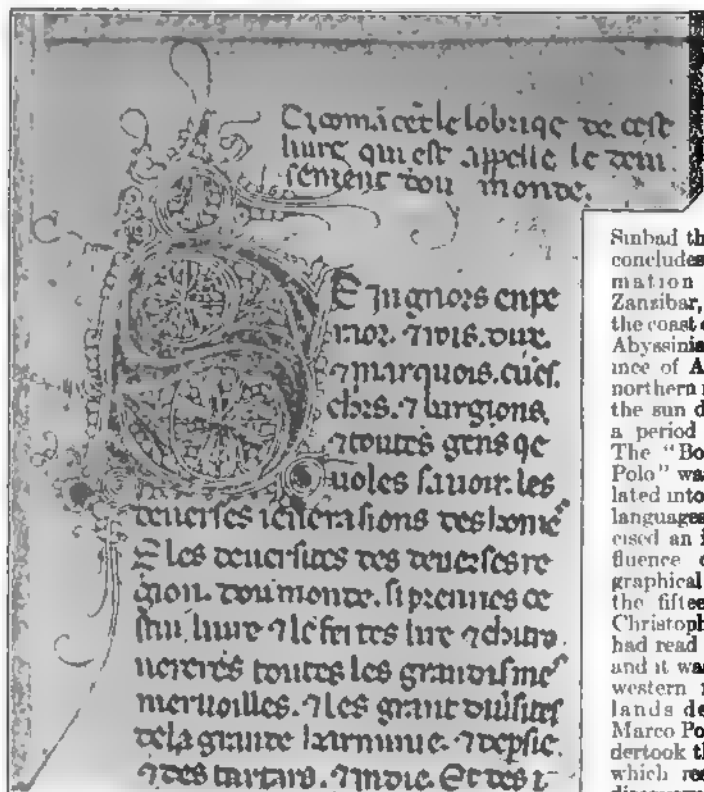 Ci comācēt le lobrique de cest
liure qui est appelle le deui
sement dou monde.
SEingnors enpe
raor. ⁊ rois. dux.
⁊ marquois. cues.
chrs. ⁊ burgions.
⁊ toutes gens qe
uoles sauoir. les
deuerses ienerasions des home
E les deuersites des deuerses re
gion. dou monde. si prennes ce
stui liure ⁊ le feites lire ⁊ chi
uereres toutes les grandismes
meruoilles. ⁊ les grant diuersites
de la grande harminie. ⁊ de psie.
⁊ des tartars. ⁊ indie. Et des
Sinbad th
concludes
mation
Zanzibar,
the coast o
Abyssinia
ince of A
northern r
the sun d
a period
The "Bo
Polo" wa
lated into
languages
cised an i
fluence o
graphical
the fifteen
Christoph
had read
and it was
western r
lands de
Marco Po
dertook th
which res